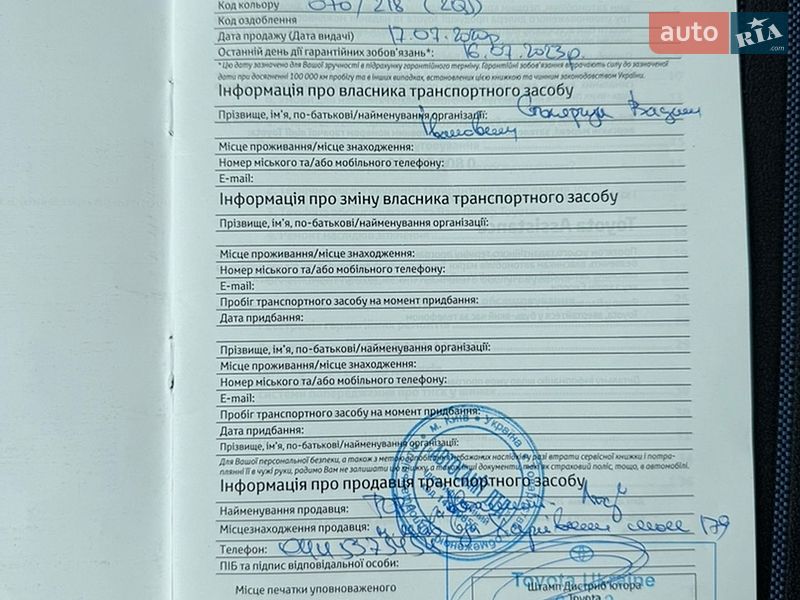 Код кольору 070/218 (2QJ)
Код оздоблення
Дата продажу (Дата видачі) 17.07.2020р
Останній день дії гарантійних зобов'язань*: 16.07.2023р.
*Цю дату зазначено для Вашої зручності в підрахунку гарантійного терміну. Гарантійні зобов'язання втрачають силу до зазначеної
дати при досягненні 100 000 км пробігу та в інших випадках, встановлених цією книжкою та чинним законодавством України.
auto RIA.com
Інформація про власника транспортного засобу
Прізвище, ім'я, по-батькові/найменування організації: Вадим
Іванович
Місце проживання/місце знаходження:
Номер міського та/або мобільного телефону:
E-mail:
Інформація про зміну власника транспортного засобу
Прізвище, ім'я, по-батькові/найменування організації:
Місце проживання/місце знаходження:
Номер міського та/або мобільного телефону:
E-mail:
Пробіг транспортного засобу на момент придбання:
Дата придбання:
Прізвище, ім'я, по-батькові/найменування організації:
Місце проживання/місце знаходження:
Номер міського та/або мобільного телефону:
E-mail:
Пробіг транспортного засобу на момент придбання:
Дата придбання:
Прізвище, ім'я, по-батькові/найменування організації:
Для Вашої персональної безпеки, а також з метою запобігання небажаних наслідків у разі втрати сервісної книжки і потра-
плянні її в чужі руки, радимо Вам не залишати цю книжку, а також інші документи, такі як страховий поліс, тощо, в автомобілі.
м. Київ * Україна
Інформація про продавця транспортного засобу
Найменування продавця:
Місцезнаходження продавця: 179
Телефон:
ПІБ та підпис відповідальної особи:
Toyota Ukraine
Місце печатки уповноваженого
Штамп Дистриб'ютора
Toyota